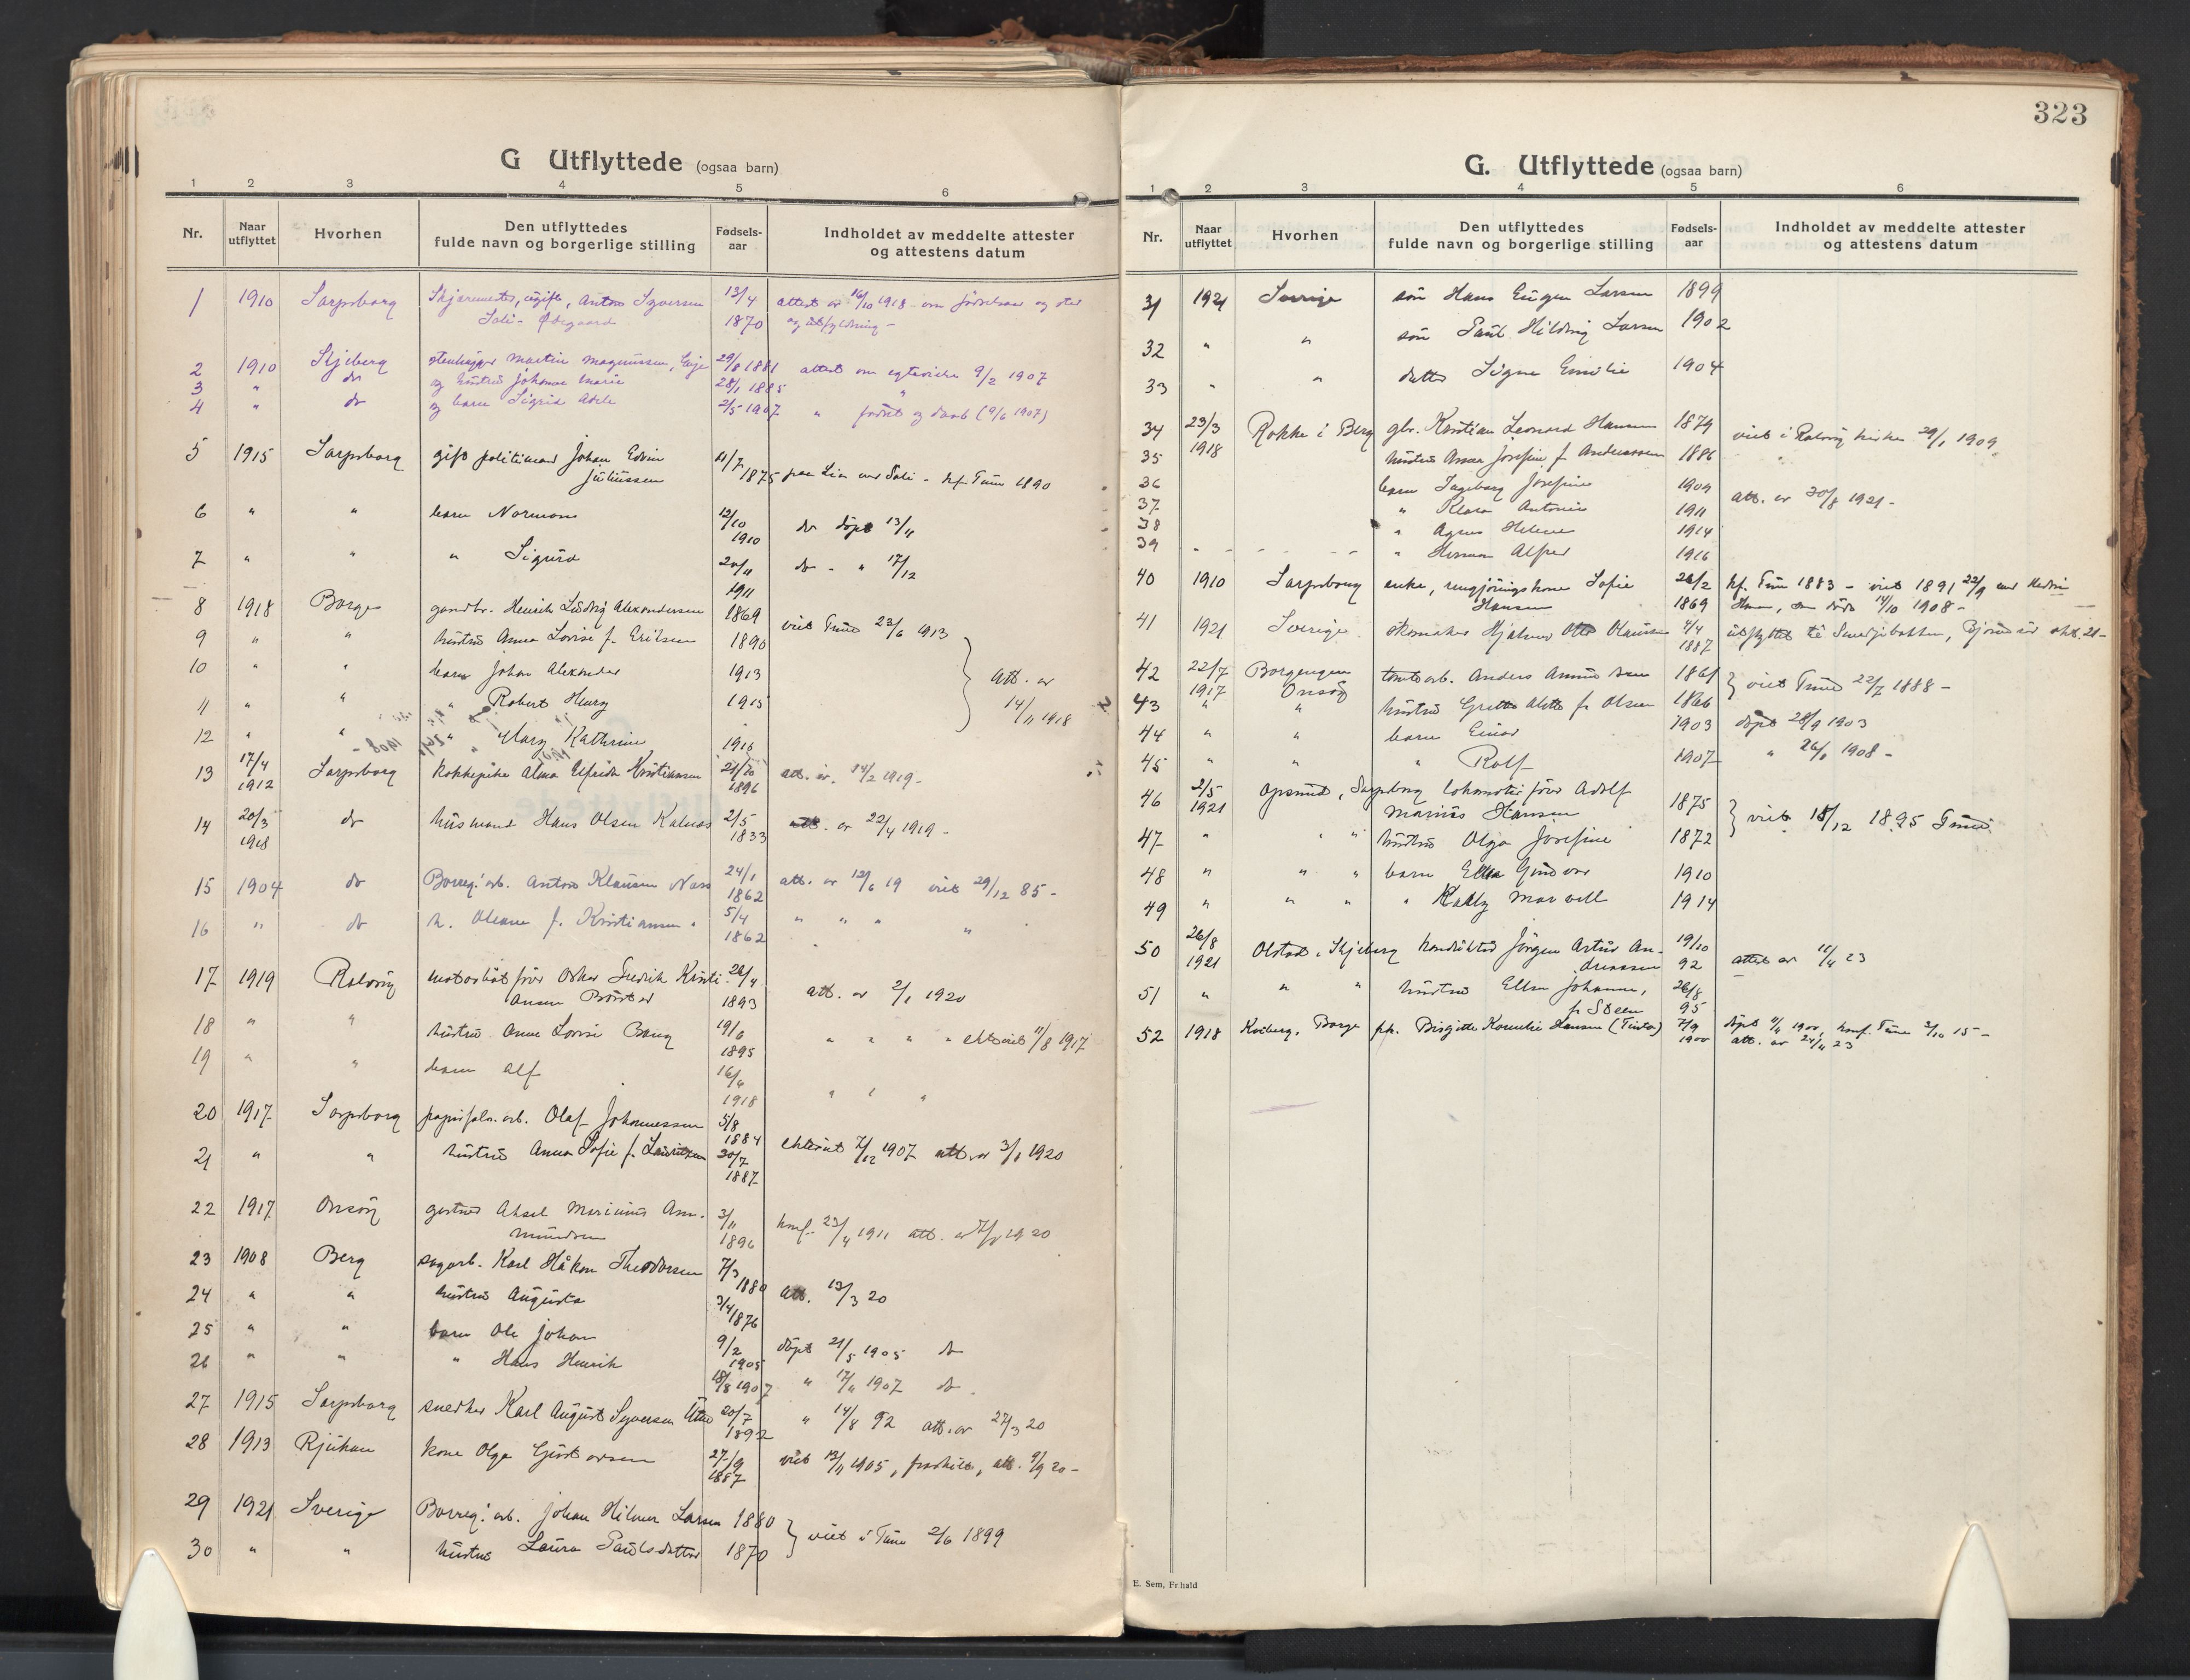 G Utflyttede (ogsaa barn)
1 2 3 4 5 6
Nr. Naar utflyttet Hvorhen Den utflyttedes fulde navn og borgerlige stilling Fødsels-aar Indholdet av meddelte attester og attestens datum
1 1910 Sarpsborg ugift, Anton Syversen 13/4 attest av 16/10 1918 om fødselsaar og sted
Soli - Ødegaard 1870
2 1910 Skjeberg stenhugger Martin Magnussen, 29/8 1881 attest om egtevielse 9/2 1907
3 " do og hustru Johanne Marie 28/1 1885 "
4 " do og barn Sigrid Adele 2/5 1907 " fødsel og daab (9/6 1907)
5 1915 Sarpsborg gift politimand Johan Edvin 4/7
Juliussen 1875 paa Lia under Soli - kf. Tune 1890
6 " " barn Normann 12/10 1910 do døpt 13/11
7 " " " Sigurd 20/11 1911 do - " 17/12
8 1918 Borge gaardbr. Henrik Ludvig Alexandersen 1869 viet Tune 23/6 1913
9 " " hustru Anna Lovise f. Eriksen 1890
10 " " barn Johan Alexander 1913 att. av
11 " " " Robert Henry 1915 14/11 1918
12 " " " Mary Kathrine 1916
13 17/4 1912 Sarpsborg kokkepike Alma Elfrida Kristiansen 21/10 1896 att. av 14/2 1919 -
14 20/3 1918 do husmand Hans Olsen Kalnes 2/5 1833 att. av 22/4 1919 -
15 1904 do Borreg. arb. Anton Klausen Næss 24/1 1862 att. av 12/6 19 viet 29/12 85 -
16 " do h. Oleane f. Kristiansen 5/4 1862 " " " "
17 1919 Rolvsøy motorbåtfører Oskar Fredrik Kristi- 26/4
ansen 1893 att. av 2/1 1920
18 " " hustru Anna Lovise Bang 19/6 1895 " " " " ekteviet 11/8 1917
19 " " barn Alf 16/6 1918 " " "
20 1917 Sarpsborg papirfabr. arb. Olaf Johannessen 5/8 1884
21 " " hustru Anna Sofie f. Lauritzen 30/7 1887 ekteviet 7/12 1907 att. av 3/1 1920
22 1917 Onsøy gartner Aksel Marinius Am-
mundsen 3/11 1896 konf. 23/4 1911 att. av 1920
23 1908 Berg sagarb. Karl Håkon Theodorsen 7/3 1880
24 " " hustru Augusta 3/4 1876 att. 13/3 20
25 " " barn Ole Johan 9/2 1905 døpt 21/5 1905 do
26 " " " Hans Henrik 18/8 1907 " 17/11 1907 do.
27 1915 Sarpsborg snedker Karl August Syversen 20/7 1892 " 14/8 92 att. av 27/3 20
28 1913 Rjukan kone Olga Gustavsen 27/9 1887 viet 1905, fraskilt, att. 9/9 20 -
29 1921 Sverige Borreg. arb. Johan Hilmer Larsen 1880
viet i Tune 2/6 1899
30 " " hustru Laura Paulsdatter 1870
323
G. Utflyttede (ogsaa barn)
1 2 3 4 5 6
Nr. Naar utflyttet Hvorhen Den utflyttedes fulde navn og borgerlige stilling Fødsels-aar Indholdet av meddelte attester og attestens datum
31 1921 Sverige søn Hans Eugen Larsen 1899
32 " " søn Paul Hilding Larsen 1902
33 " " datter Signe Emilie 1904
34 23/3 1918 Rokke i Berg gbr. Kristian Leonard Hansen 1879 viet i Rolvsøy kirke 29/1 1909
35 hustru Anna Josefine f. Andreassen 1886 "
36 barn Ingeborg Josefine 1909 att. av 30/8 1921 -
37 " Klara Antonie 1911
38 " Agnes Helene 1914
39 - - - - - " Herman Alfred 1916
40 1910 Sarpsborg enke, rengjøringskone Sofie 26/2 kf. Tune 1883 - viet 1891 22/9 med
Hansen 1869 Hansen, som døde 14/10 1908 -
41 1921 Sverige skomaker Hjalmar Otto Olausen 4/4 1887 utflyttet til Smedjebakken, okt. 21 -
42 22/7 1917 Borgengen Onsøy tomtearb. Anders Amundsen 1861 viet Tune 22/7 1888 -
43 " " hustru Grette Alette f. Olsen 1866
44 " " barn Einar 1903 døpt 28/9 1903
45 " " " Rolf 1907 " 26/1 1908 -
46 2/5 1921 Opsund, Sarpsborg lokomotivfører Adolf
Marius Hansen 1875 viet 15/12 1895 Tune
47 " " " hustru Olga Josefine 1872
48 " " " barn Ella Gunvor 1910
49 " " " " 1914
50 26/8 1921 Olstad i Skjeberg konduktør Jørgen Artur An-
dreassen 19/10 92 attest av 11/4 23
51 " " " hustru Ellen Johanne,
f. Steen 26/8 95
52 1918 Kviberg, Borge pk. Birgitte Kornelie Hansen (Tindlo) 7/9 1900 døpt 11/11 1900, konf. Tune 3/10 15 -
att. av 24/4 23
E. Sem, Fr.hald